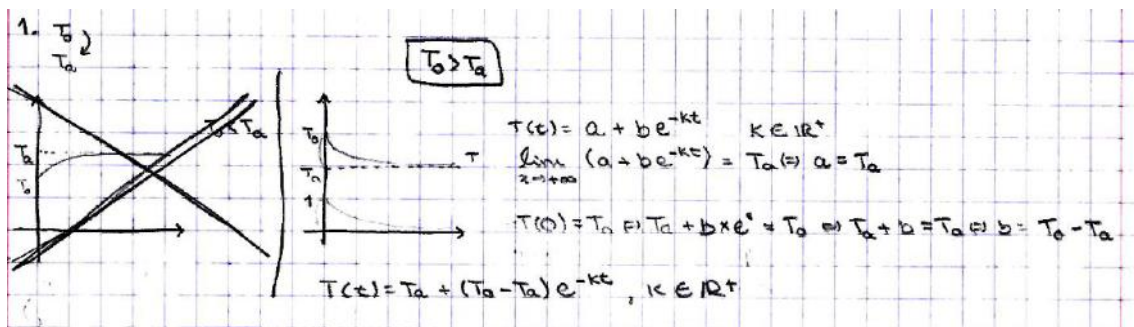 1. T₀
Tₐ
T₀ > Tₐ
T₀ < Tₐ
Tₐ
T₀
T₀
Tₐ
1
T
T(t) = a + be^{-kt} K ∈ ℝ⁺
lim_{x→+∞} (a + be^{-kt}) = Tₐ ⇔ a = Tₐ
T(0) = T₀ ⇔ Tₐ + b × e⁰ = T₀ ⇔ Tₐ + b = T₀ ⇔ b = T₀ - Tₐ
T(t) = Tₐ + (T₀ - Tₐ) e^{-kt}, K ∈ ℝ⁺